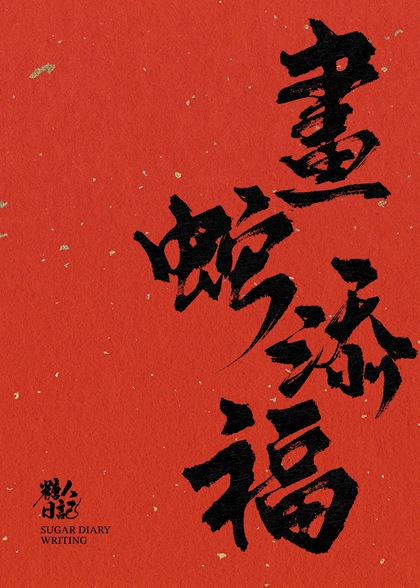 畫蛇添福
糖人
日記
SUGAR DIARY
WRITING